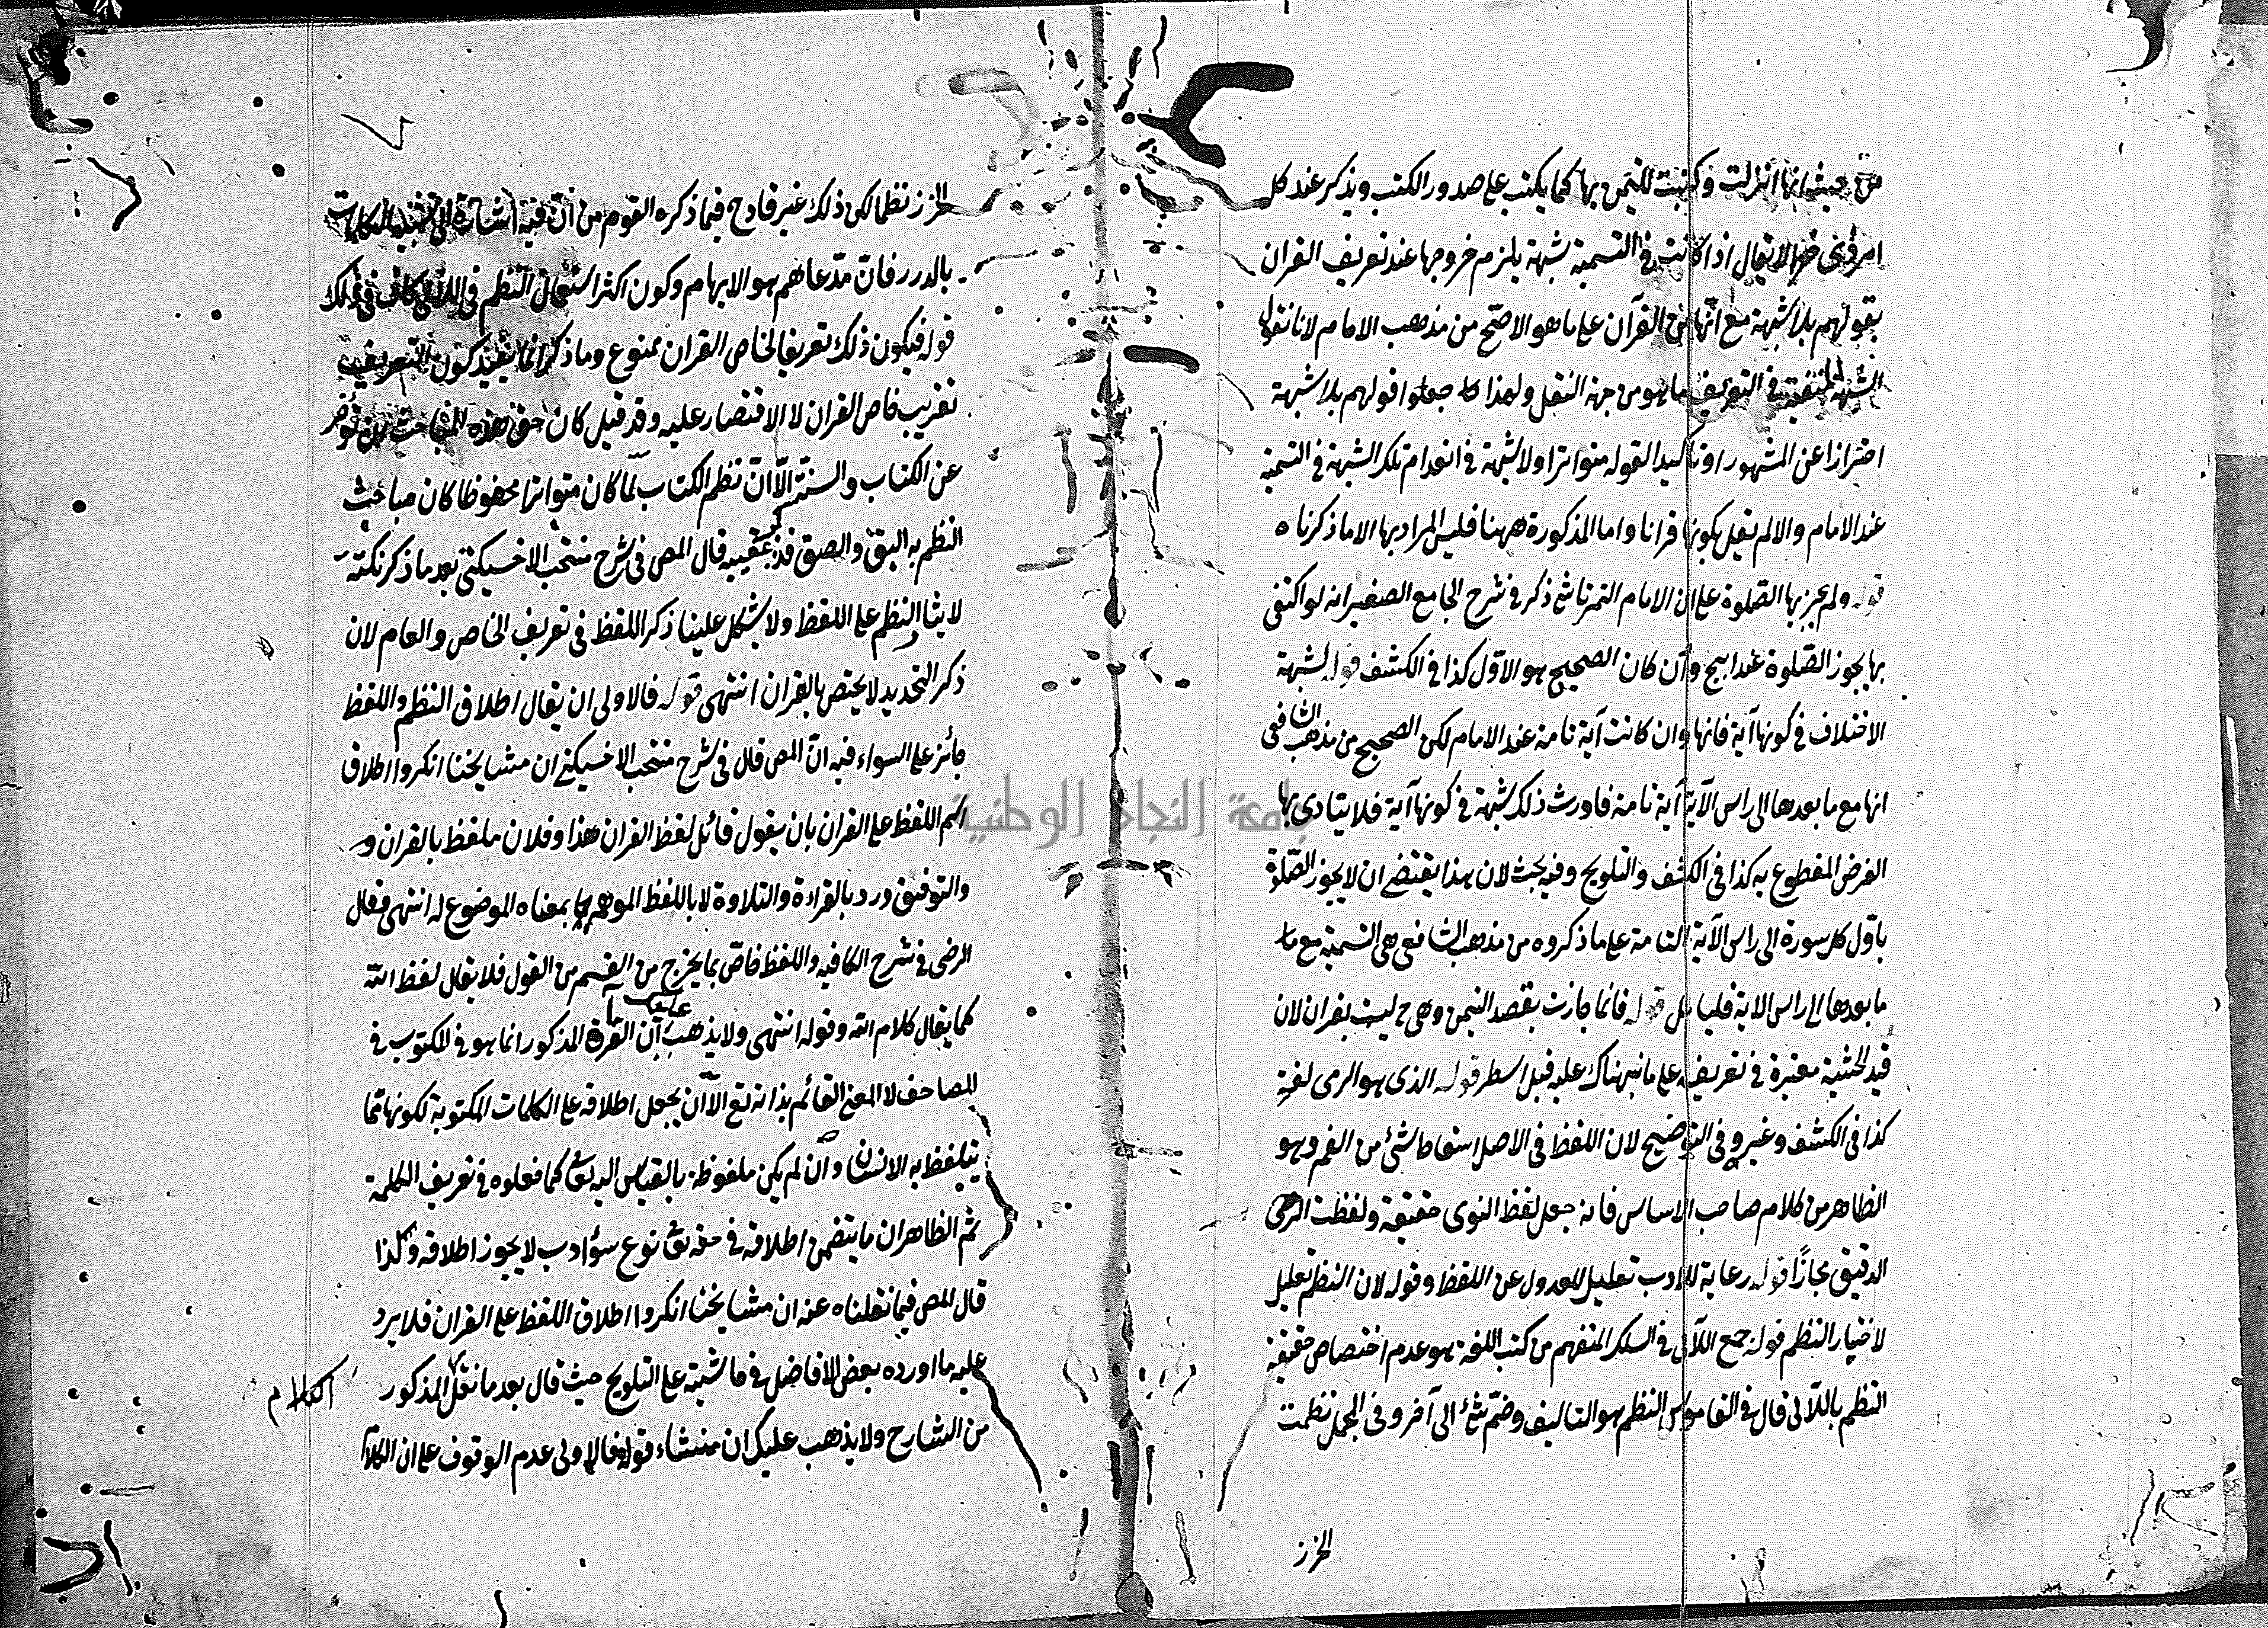 من حيث انها انزلت وكتبت للتيمن بها كما يكتب على صدور الكتب ويذكر عند كل
امر ذى بال لا يقال اذا كانت فى التسمية شبهة يلزم خروجها عند تعريف القران
بقولهم بلا شبهة مع انها من القرآن على ما هو الاصح من مذهب الامام لانا نقول
الشبهة المنفية فى التعريف ما هو من جهة النقل ولهذا جعلوا قولهم بلا شبهة
احترازا عن المشهور او تاكيدا لقوله متواترا ولا شبهة فى انعدام تلك الشبهة فى التسمية
عند الامام والا لم يقل بكونها قرانا واما المذكورة ههنا فليس المراد بها الا ما ذكرناه
قوله ولم يجز بها الصلوة على ان الامام التمرتاشى ذكر فى شرح الجامع الصغير انه لو اكتفى
بها يجوز الصلوة عند ابى ح وان كان الصحيح هو الاول كذا فى الكشف قوله لشبهة
الاختلاف فى كونها آية فانها وان كانت آية تامة عند الامام لكن الصحيح من مذهب الشافعى
انها مع ما بعدها الى راس الآية آية تامة فاورث ذلك شبهة فى كونها آية فلا يتادى بها
الفرض المقطوع به كذا فى الكشف والتلويح وفيه بحث لان هذا يقتضى ان لا يجوز الصلوة
باول كل سورة الى راس الآية التامة على ما ذكروه من مذهب الشافعى هى التسمية مع ما
ما بعدها الى راس الاية فليتامل قوله فانما جازت بقصد التيمن وهى ح ليست بقران لان
قيد الحيثية معتبرة فى تعريفه على ما نبهناك عليه قبل اسطر قوله الذى هو الرمى لغة
كذا فى الكشف وغيره وفى التوضيح لان اللفظ فى الاصل اسقاط شئ من الفم وهو
الظاهر من كلام صاحب الاساس فانه جعل لفظ النوى حقيقة ولفظت الرحى
الدقيق مجازًا قوله رعاية للادب تعليل للعدول عن اللفظ وقوله لان النظم تعليل
لاختيار النظم قوله جمع اللآلى فى السلك المتفهم من كتب اللغة هو عدم اختصاص حقيقة
النظم باللآلى قال فى القاموس النظم هو التاليف وضم شئ الى آخر وفى المجمل نظمت
الخرز
الخرز نظما لكن ذلك غير قادح فيما ذكره القوم من ان فيه اشارة الى تشبيه الكلمات
بالدرر فان مدعاهم هو الايهام وكون اكثر استعمال النظم فى اللآلى كاف فى ذلك
قوله فيكون ذلك تعريفا لخاص القران ممنوع وما ذكر انما يفيد كون التعريف
تعريب خاص القران لا الاقتصار عليه وقد قيل كان حق هذه المباحث ان تؤخر
عن الكتاب والسنة الا ان نظم الكتاب لما كان متواترا محفوظا كان مباحث
النظم به اليق والصق فذكر عقيبه قال المص فى شرح منتخب الاخسيكتى بعد ما ذكر نكتة
لايثار النظم على اللفظ ولا يشكل علينا ذكر اللفظ فى تعريف الخاص والعام لان
ذكر التحديد لا يختص بالقران انتهى قوله فالاولى ان يقال اطلاق النظم واللفظ
جائز على السواء فيه ان المص قال فى شرح منتخب الاخسيكتى ان مشايخنا انكروا اطلاق
اسم اللفظ على القران بان يقول قائل لفظ القران هذا وفلان ملفظ بالقران و
والتوفيق ورد بالقراءة والتلاوة لا باللفظ الموهم بمعناه الموضوع له انتهى فقال
الرضى فى شرح الكافيه واللفظ خاص بما يخرج من الفم من القول فلا يقال لفظ الله
كما يقال كلام الله وقوله انتهى ولا يذهب عليك ان القرآن المذكور انما هو فى المكتوب فى
المصاحف لا المعنى القائم بذاته تع الا ان يجعل اطلاقه على الكلمات المكتوبة لكونها مما
يتلفظ به الانسان وان لم يكن ملفوظة بالقياس اليه تعالى كما فعلوه فى تعريف الكلمة
ثم الظاهر ان ما يتضمن اطلاقه فى حقه تعالى نوع سؤ ادب لا يجوز اطلاقه ولذا
قال المص فيما نقلناه عنه ان مشايخنا انكروا اطلاق اللفظ على القران فلا يرد
عليه ما اورده بعض الافاضل فى حاشيته على التلويح حيث قال بعد ما نقل المذكور
الكلام
من الشارح ولا يذهب عليك ان منشاء قوله فالاولى عدم الوقوف على ان الكلام
جامعة النجاح الوطنية